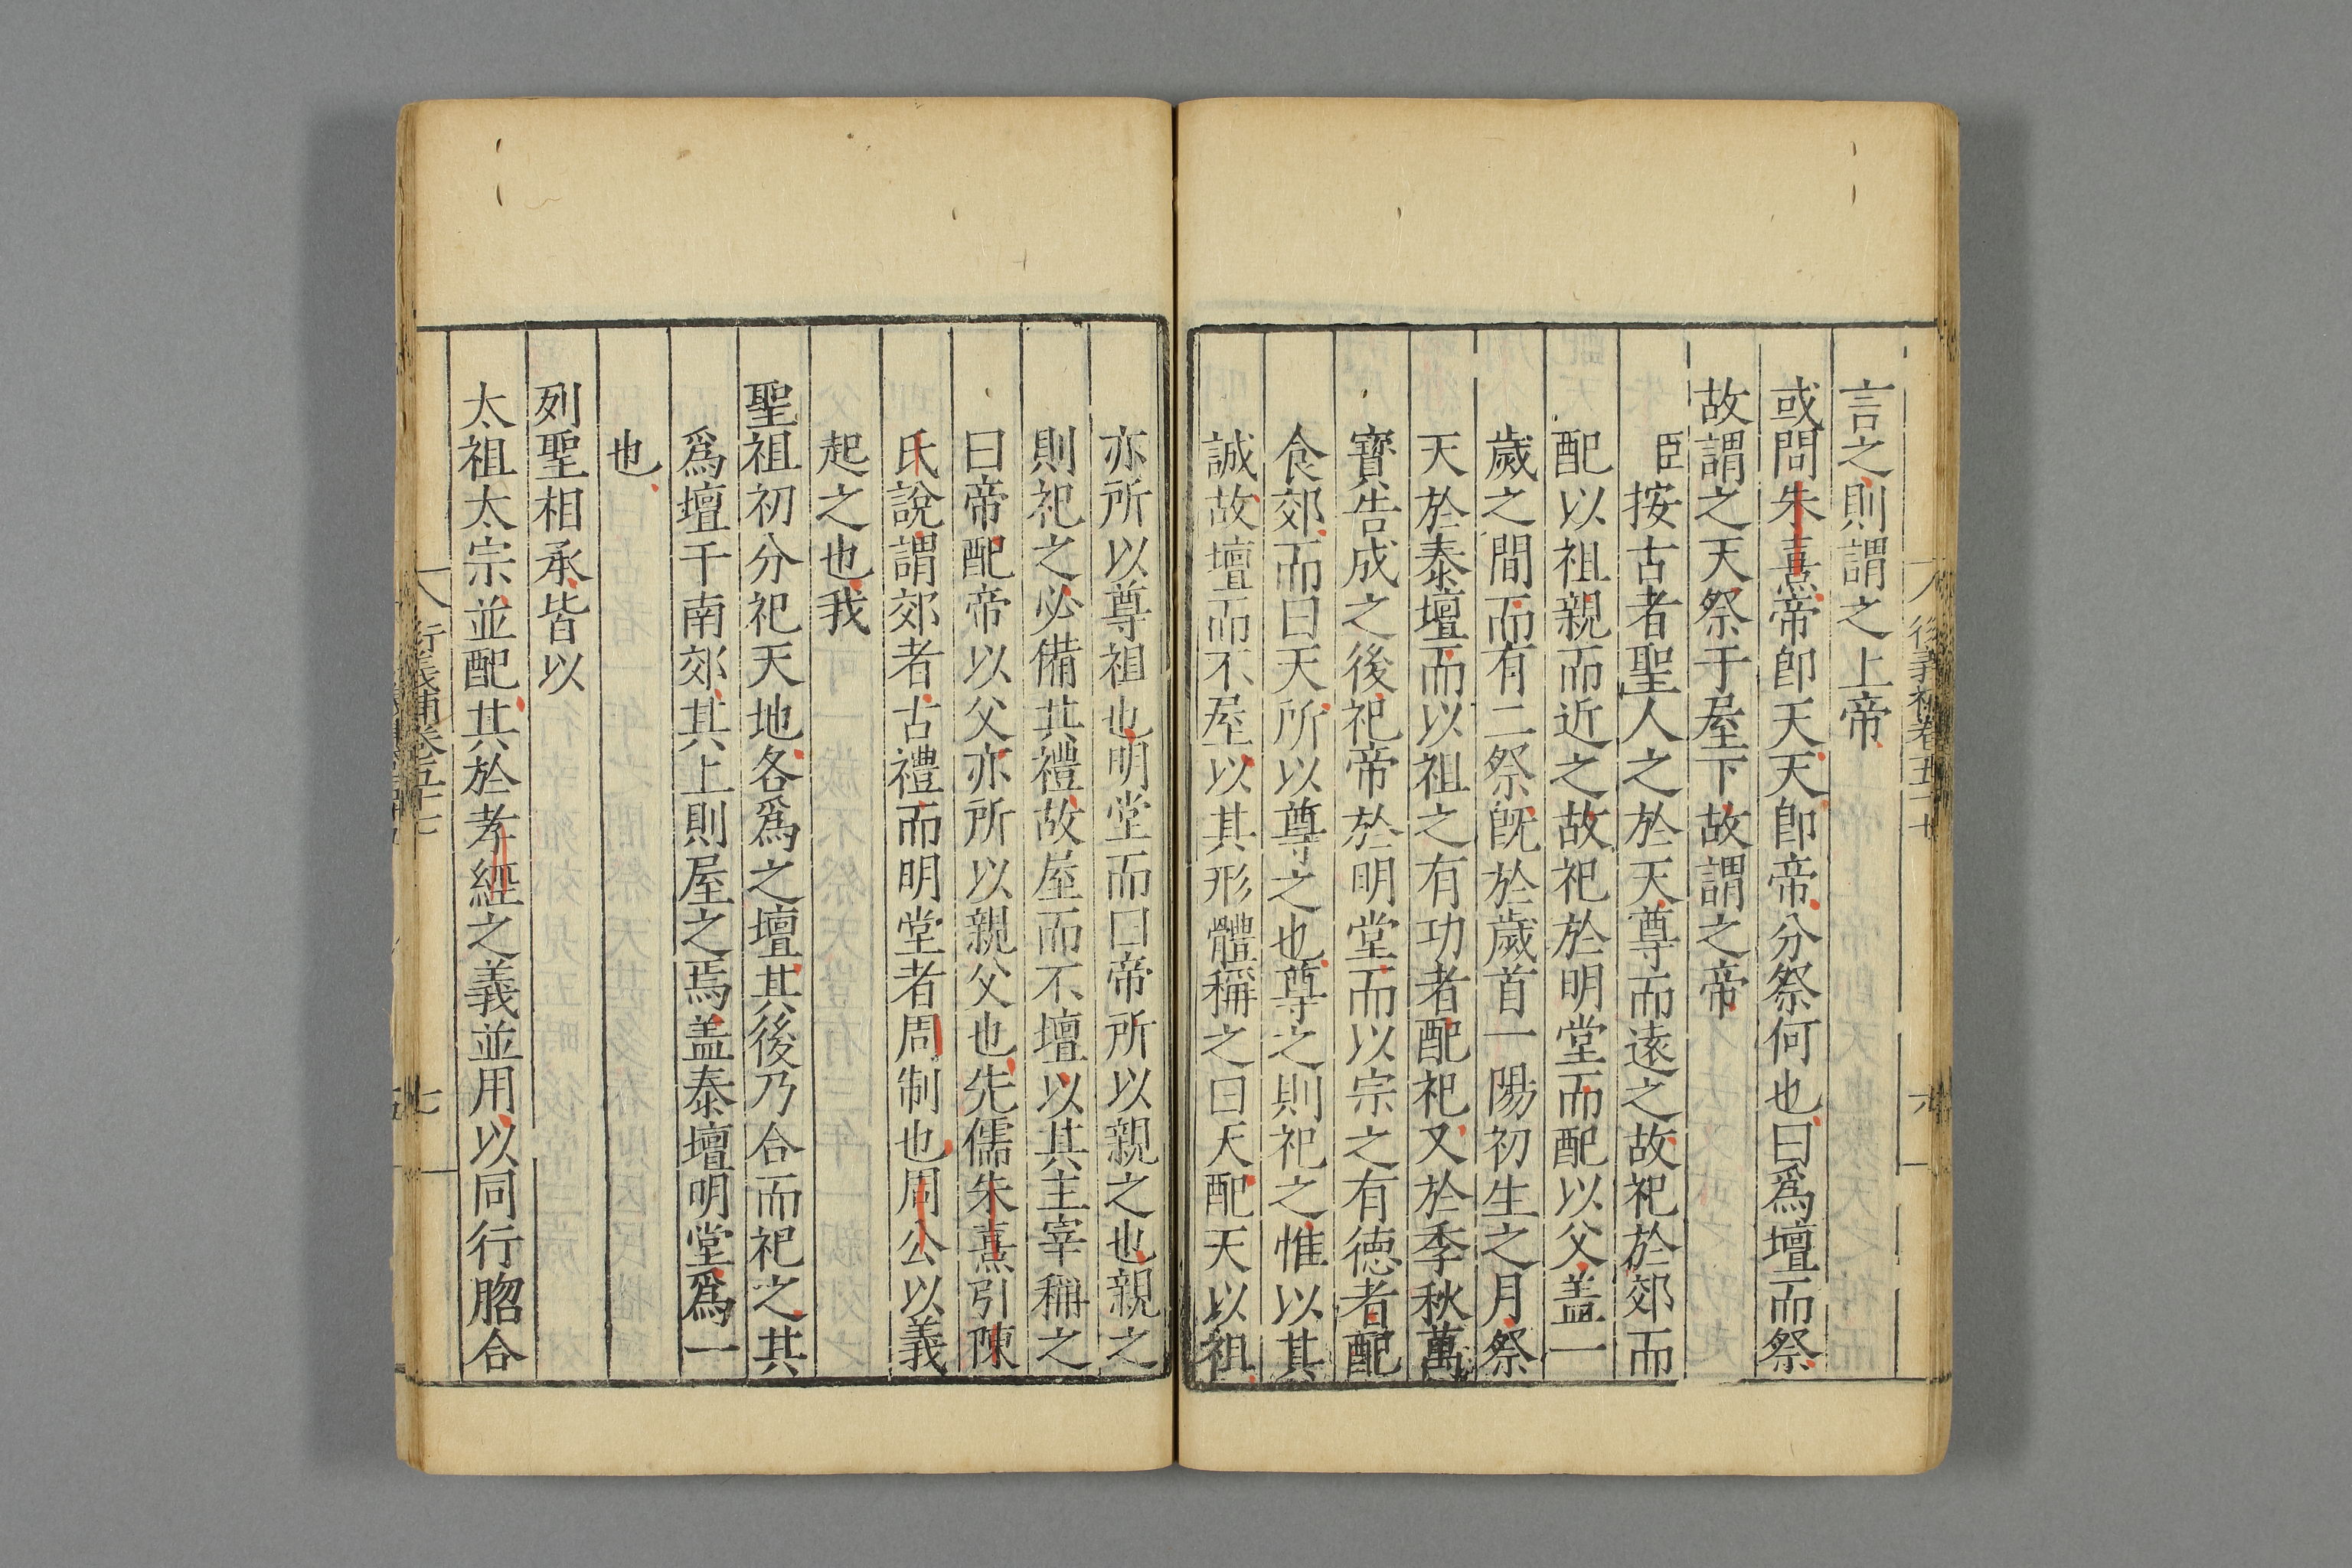 言之則謂之上帝
或問朱熹帝卽天天卽帝分祭何也曰爲壇而祭
故謂之天祭于屋下故謂之帝
臣按古者聖人之於天尊而遠之故祀於郊而
配以祖親而近之故祀於明堂而配以父盖一
歲之間而有二祭旣於歲首一陽初生之月祭
天於泰壇而以祖之有功者配祀又於季秋萬
寳告成之後祀帝於明堂而以宗之有德者配
食郊而曰天所以尊之也尊之則祀之惟以其
誠故壇而不屋以其形體稱之曰天配天以祖
亦所以尊祖也明堂而曰帝所以親之也親之
則祀之必備其禮故屋而不壇以其主宰稱之
曰帝配帝以父亦所以親父也先儒朱熹引陳
氏說謂郊者古禮而明堂者周制也周公以義
起之也我
聖祖初分祀天地各爲之壇其後乃合而祀之其
爲壇于南郊其上則屋之焉盖泰壇明堂爲一
也
列聖相承皆以
太祖太宗並配其於孝經之義並用以同行脗合